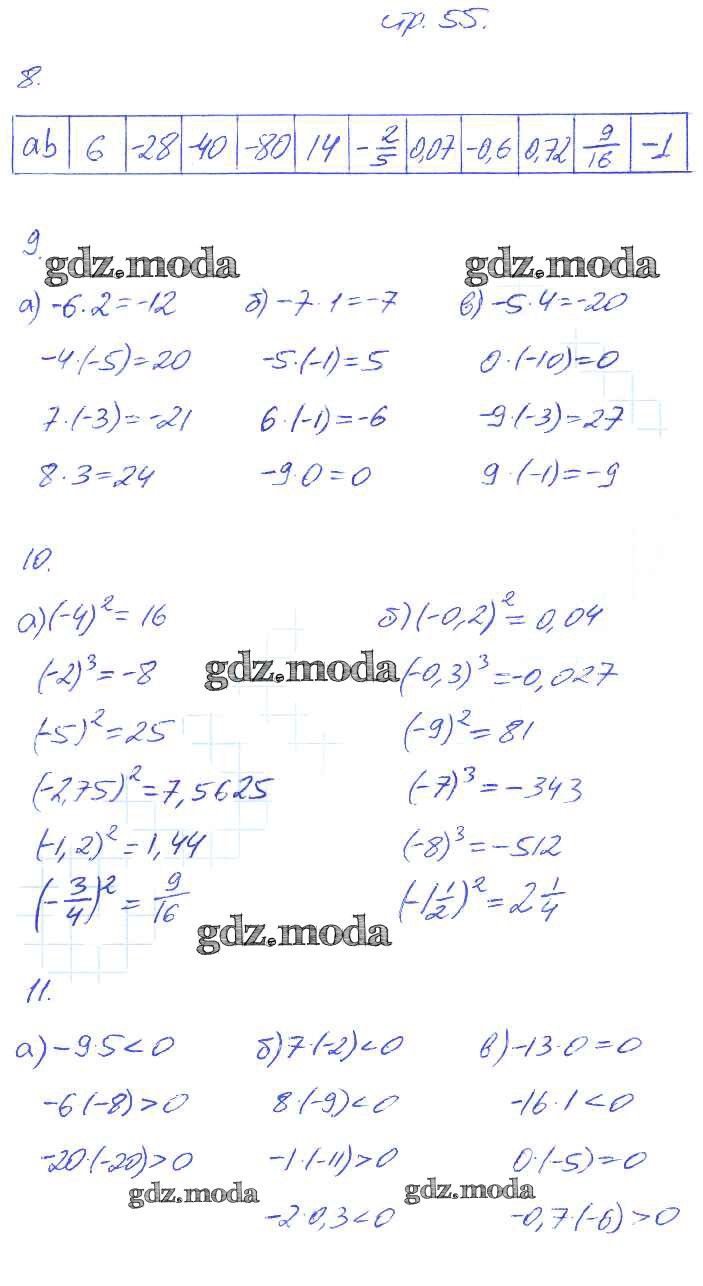 стр. 55.
8.
ab 6 -28 -40 -80 14 -2/5 0,07 -0,6 0,72 9/16 -1
9.
gdz.moda gdz.moda
а) -6·2=-12 б) -7·1=-7 в) -5·4=-20
-4·(-5)=20 -5·(-1)=5 0·(-10)=0
7·(-3)=-21 6·(-1)=-6 -9·(-3)=27
8·3=24 -9·0=0 9·(-1)=-9
10.
а) (-4)²=16 б) (-0,2)²=0,04
(-2)³=-8 gdz.moda (-0,3)³=-0,027
(-5)²=25 (-9)²=81
(-2,75)²=7,5625 (-7)³=-343
(-1,2)²=1,44 (-8)³=-512
(-3/4)²=9/16 (-1 1/2)²=2 1/4
gdz.moda
11.
а) -9·5<0 б) 7·(-2)<0 в) -13·0=0
-6(-8)>0 8·(-9)<0 -16·1<0
-20·(-20)>0 -1·(-11)>0 0·(-5)=0
gdz.moda gdz.moda
-2·0,3<0 -0,7·(-6)>0